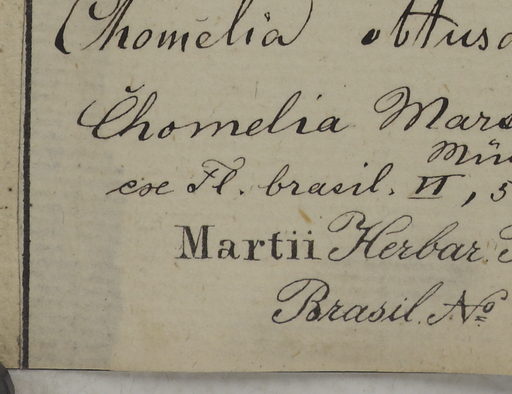 Chomelia obtus
Chomelia Mars
Mü
ex Fl. brasil. VI, 5
Martii Herbar.
Brasil. No